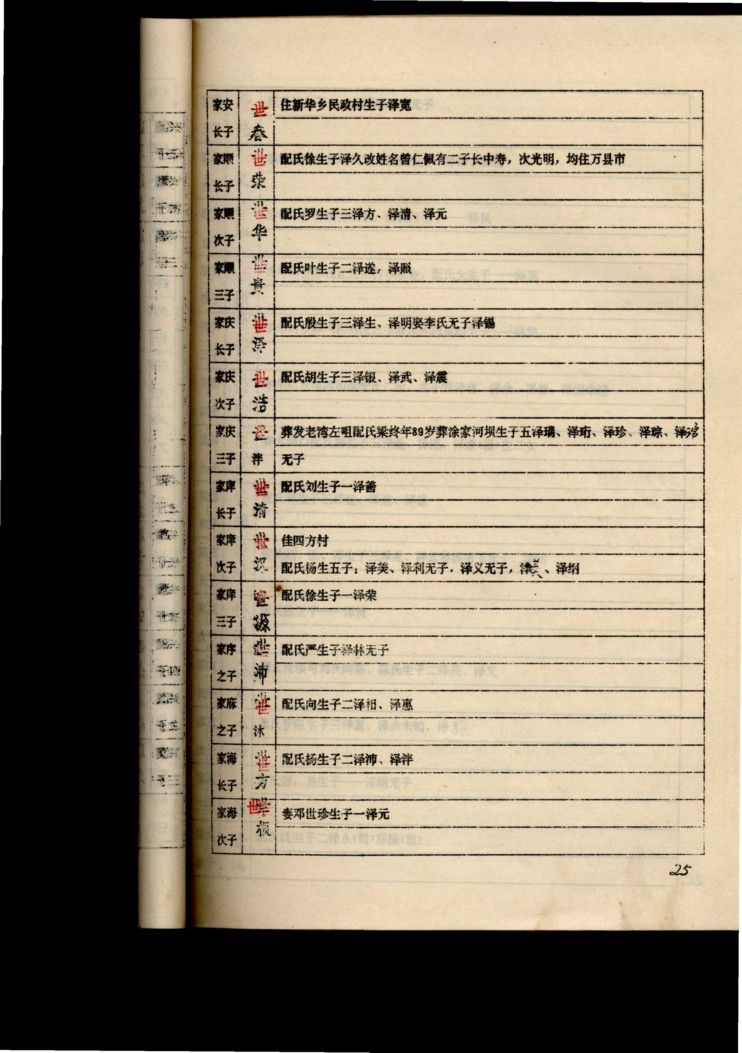 家安 世 住新华乡民政村生子泽宽
长子 春
家顺 世 配氏徐生子泽久改姓名曾仁佩有二子长中寿，次光明，均住万县市
长子 荣
家顺 世 配氏罗生子三泽方、泽清、泽元
次子 华
家顺 世 配氏叶生子二泽遂，泽熙
三子 贵
家庆 世 配氏殷生子三泽生、泽明娶李氏无子泽锡
长子 泽
家庆 世 配氏胡生子三泽银、泽武、泽震
次子 洁
家庆 世 葬发老湾左咀配氏梁终年89岁葬涂家河坝生子五泽瑞、泽珩、泽珍、泽琼、泽
三子 沣 无子
家庠 世 配氏刘生子一泽善
长子 清
家庠 世 佳四方村
次子 汉 配氏杨生五子：泽美、泽利无子，泽义无子，泽英、泽纲
家庠 世 配氏徐生子一泽荣
三子 源
家序 世 配氏严生子泽林无子
之子 沛
家庥 世 配氏向生子二泽相、泽惠
之子 沐
家海 世 配氏扬生子二泽沛、泽泮
长子 方
家海 世 妻邓世珍生子一泽元
次子 板
25